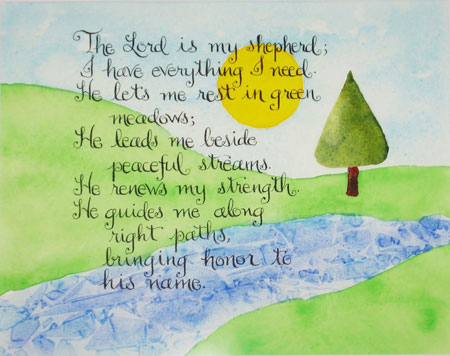 The Lord is my shepherd;
I have everything I need.
He lets me rest in green
meadows;
He leads me beside
peaceful streams.
He renews my strength.
He guides me along
right paths,
bringing honor to
his name.